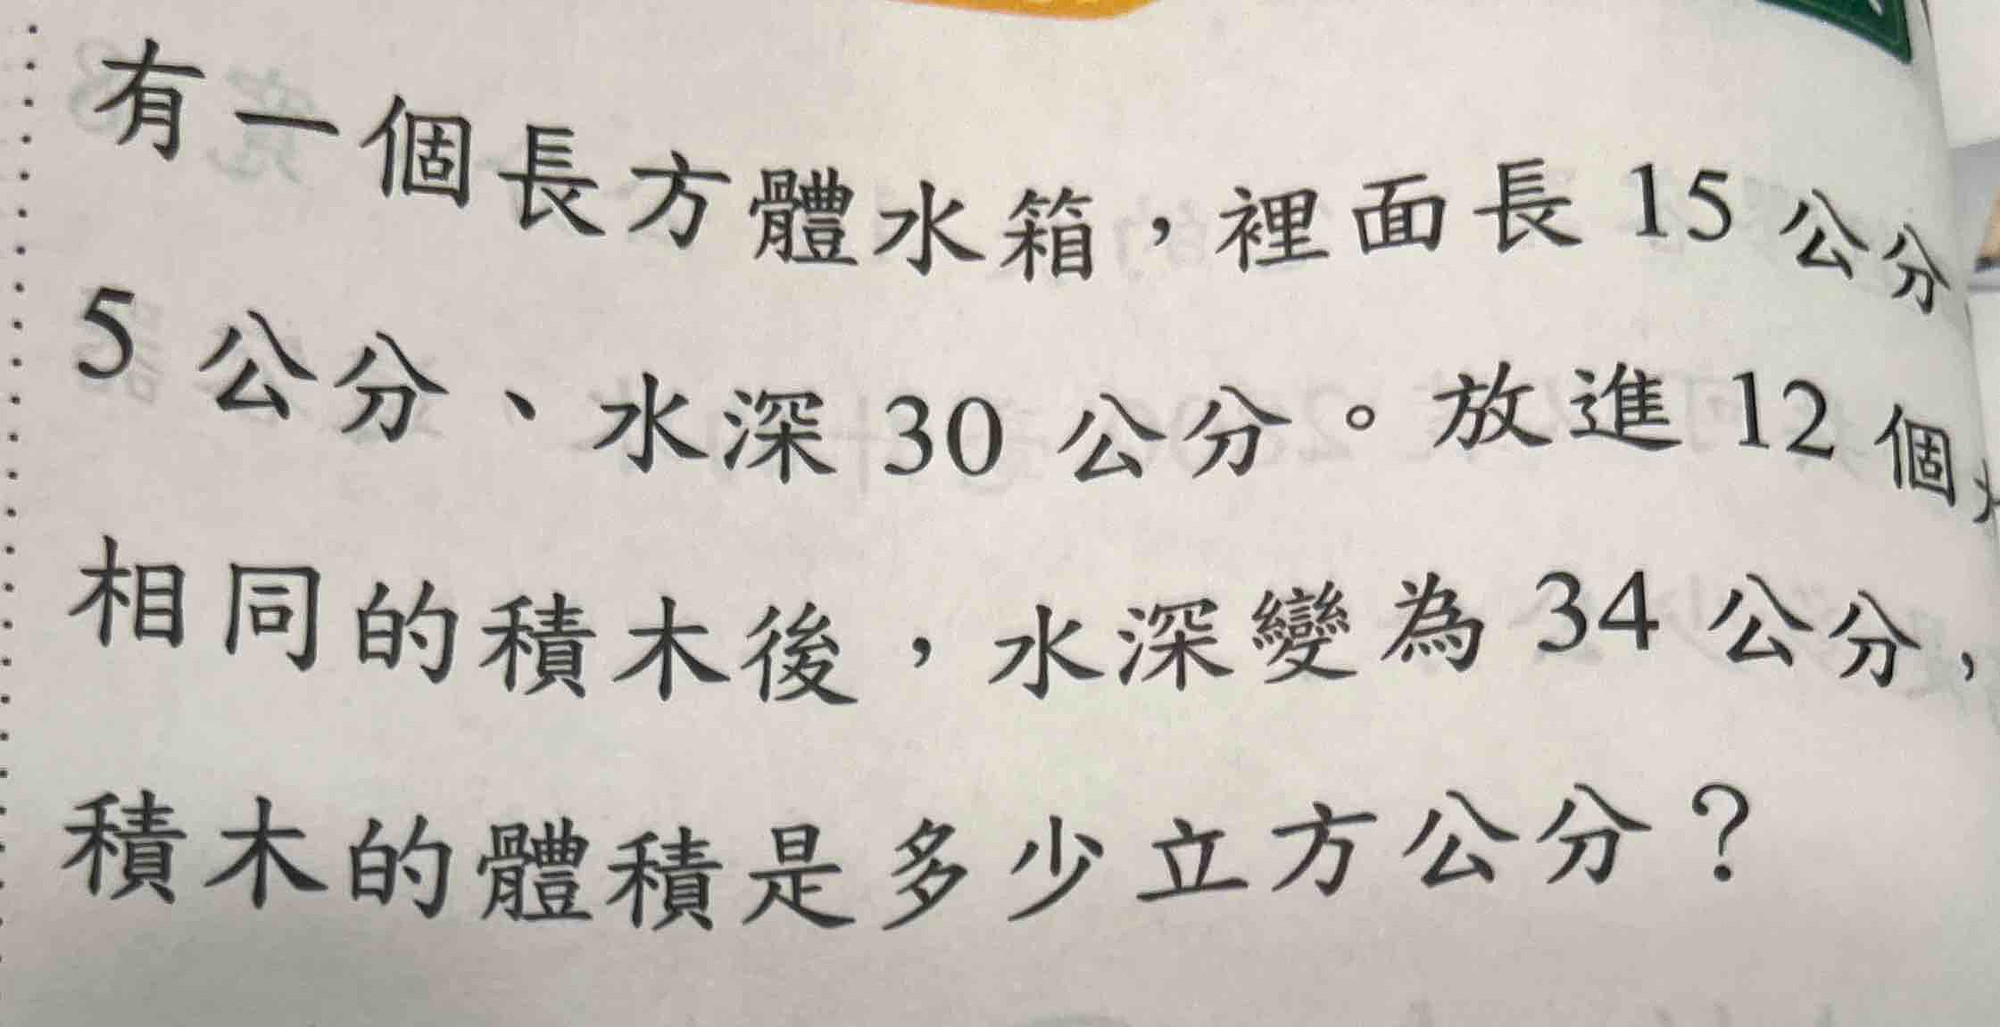 有一個長方體水箱，裡面長15公分
5公分、水深30公分。放進12個
相同的積木後，水深變為34公分，
積木的體積是多少立方公分？